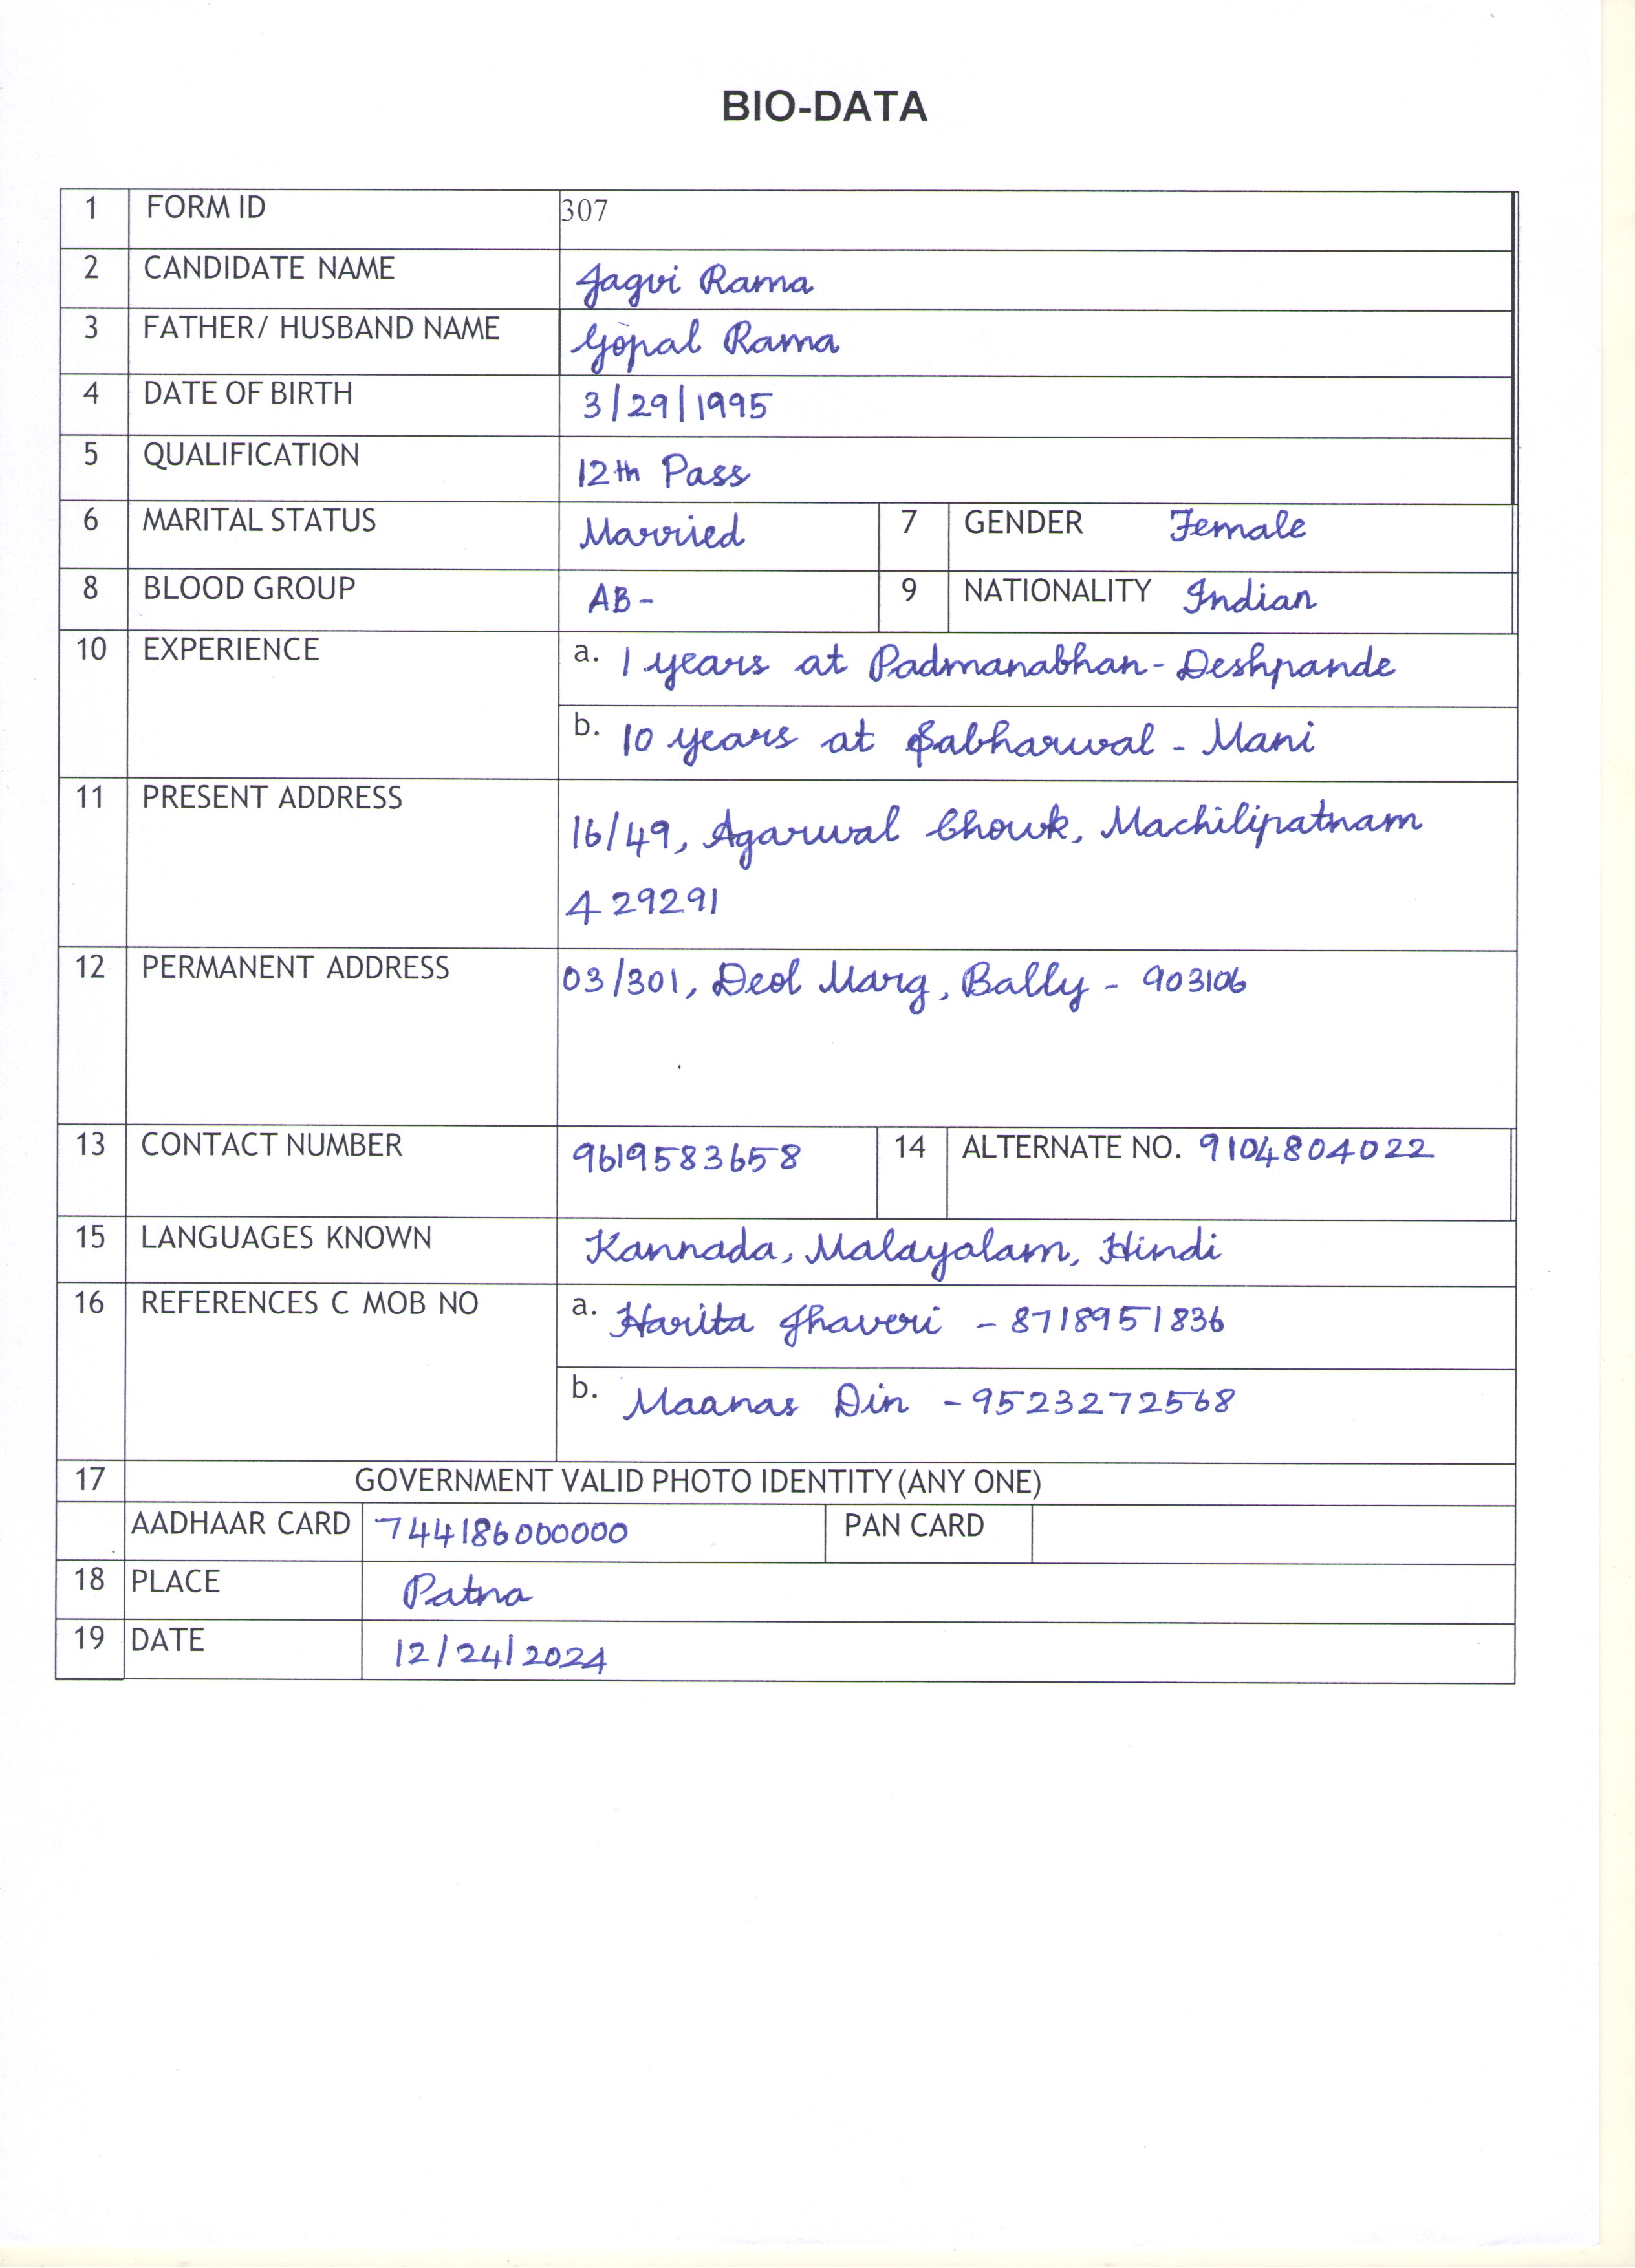 BIO-DATA
1 FORM ID 307
2 CANDIDATE NAME Jagvi Rama
3 FATHER/ HUSBAND NAME Gopal Rama
4 DATE OF BIRTH 3/29/1995
5 QUALIFICATION 12th Pass
6 MARITAL STATUS Married 7 GENDER Female
8 BLOOD GROUP AB- 9 NATIONALITY Indian
10 EXPERIENCE a. 1 years at Padmanabhan-Deshpande
b. 10 years at Sabharwal - Mani
11 PRESENT ADDRESS
16/49, Agarwal Chowk, Machilipatnam
429291
12 PERMANENT ADDRESS 03/301, Deol Marg, Bally - 903106
13 CONTACT NUMBER 9619583658 14 ALTERNATE NO. 9104804022
15 LANGUAGES KNOWN Kannada, Malayalam, Hindi
16 REFERENCES C MOB NO a. Harita Jhaveri - 8718951836
b. Maanas Din - 9523272568
17 GOVERNMENT VALID PHOTO IDENTITY (ANY ONE)
AADHAAR CARD 744186000000 PAN CARD
18 PLACE Patna
19 DATE 12/24/2024